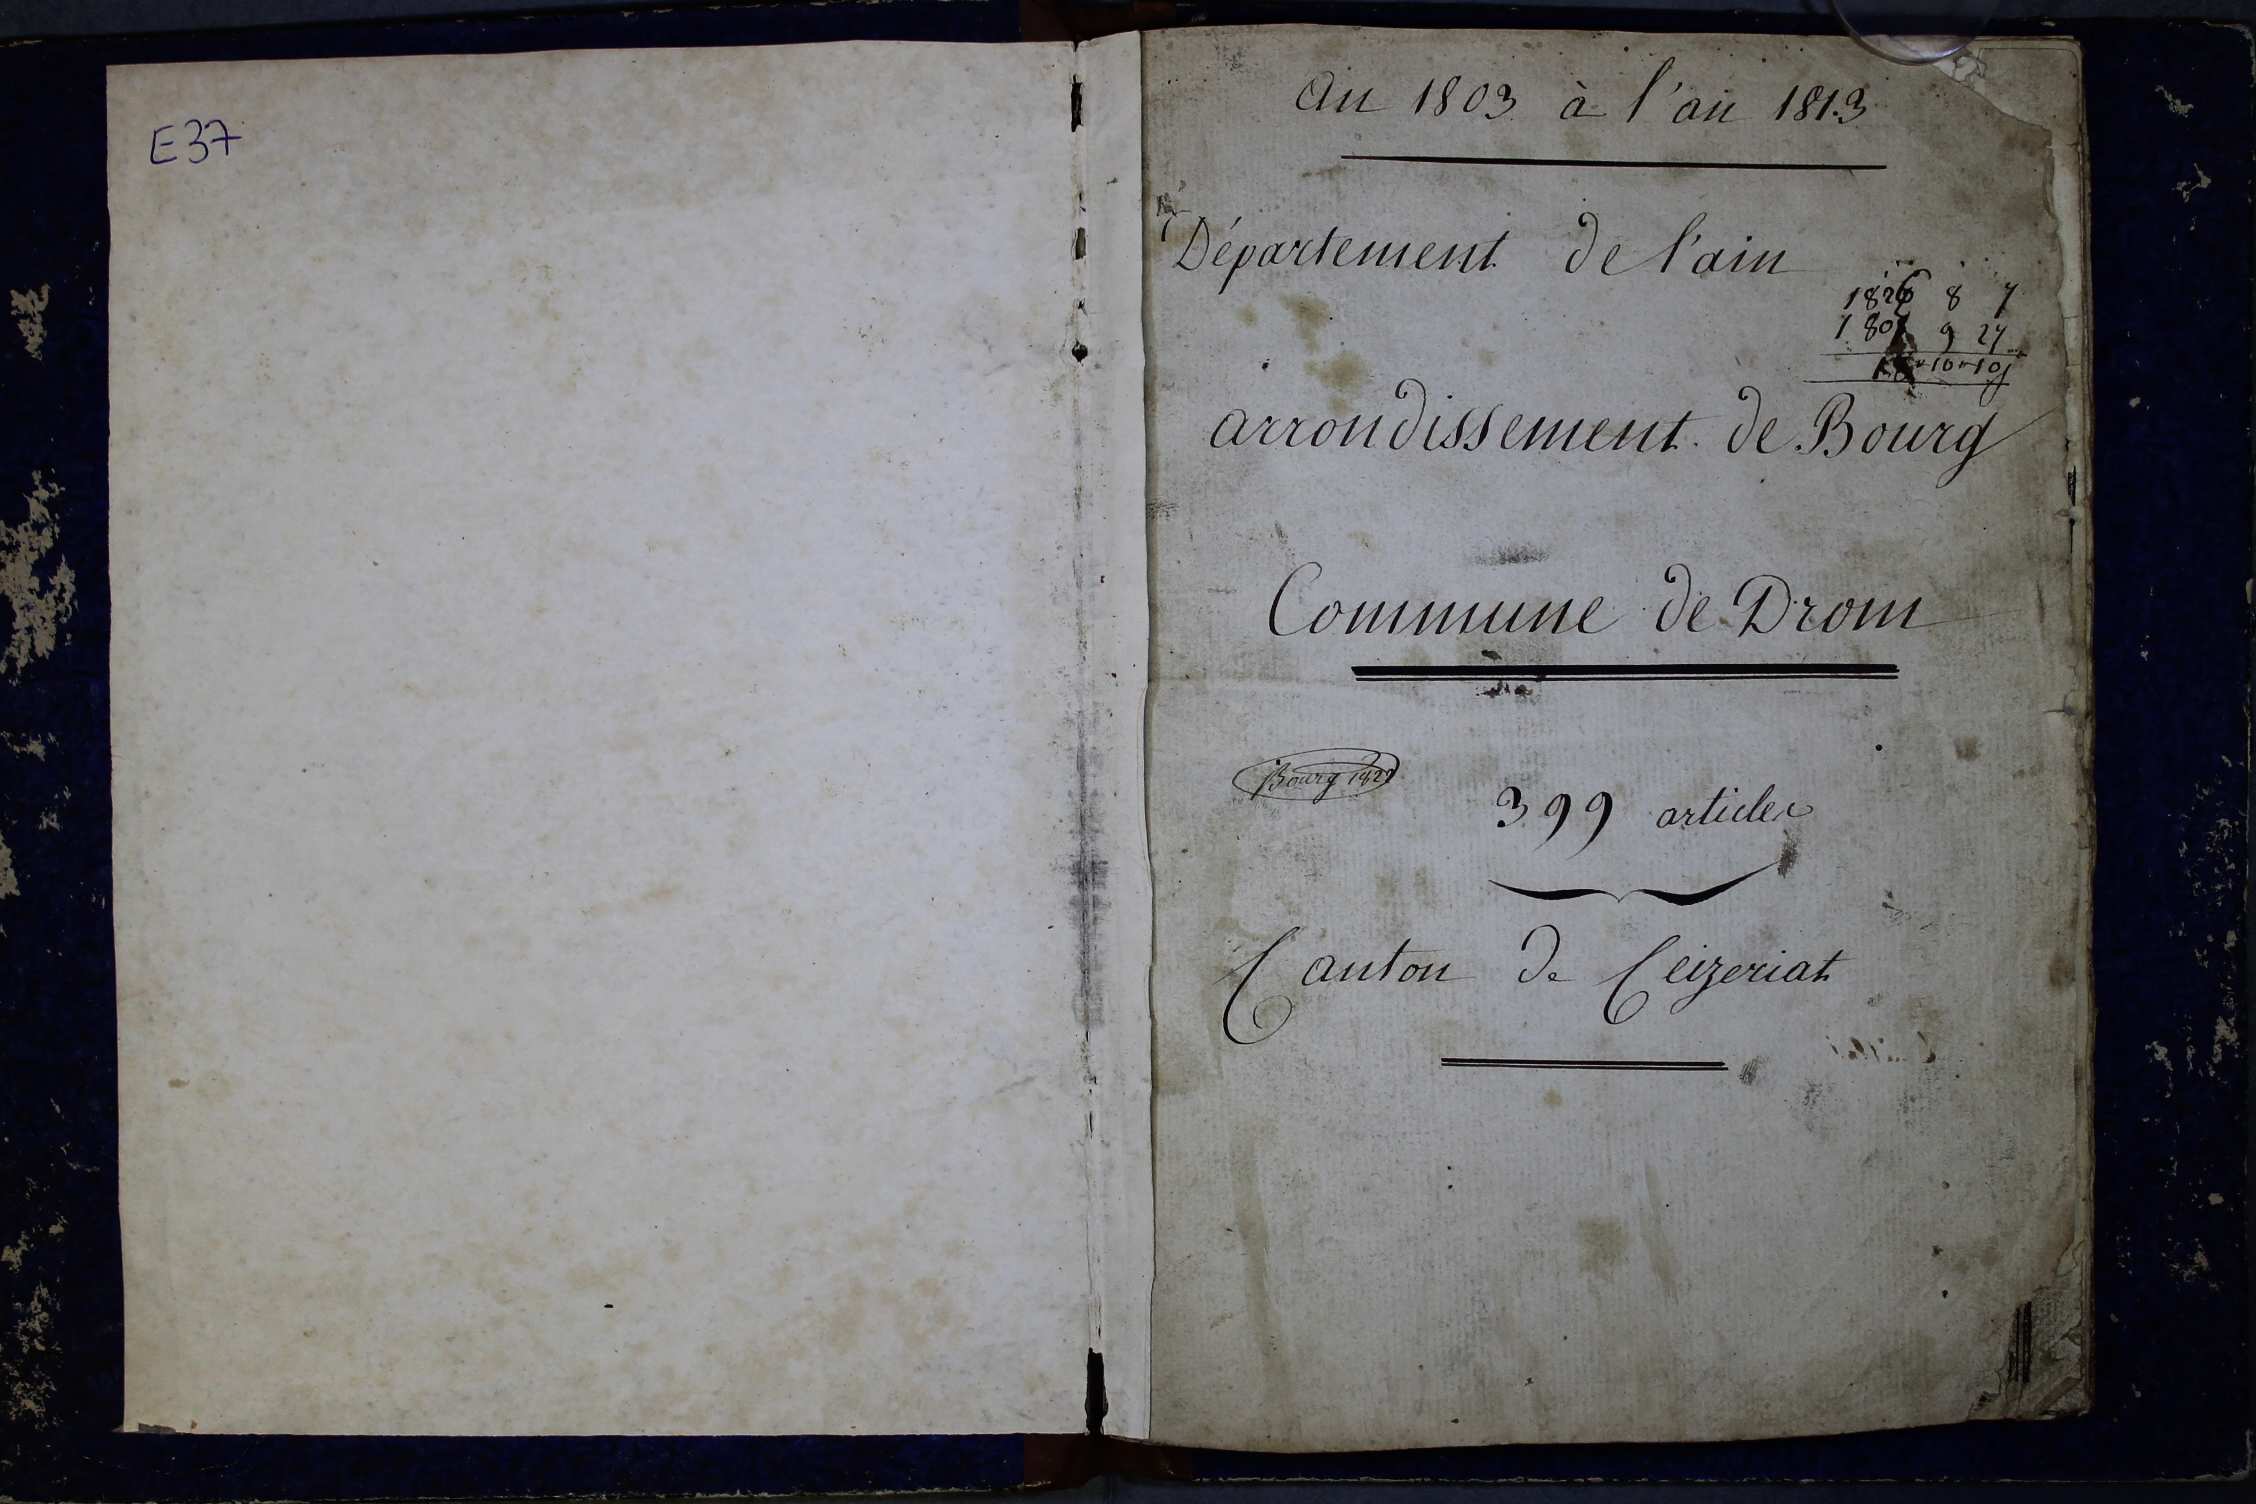 E37
an 1803 à l'an 1813
Département de l'ain
8 7
9 27
arrondissement de Bourg
Commune de Drom
Bourg
399 articles
Canton de Ceizeriat